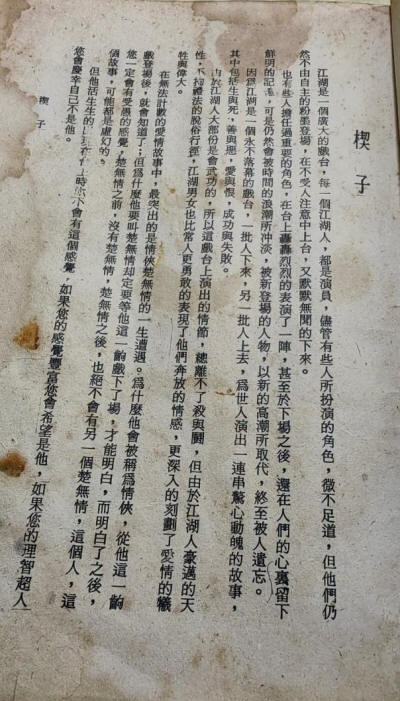 楔子
江湖是一個廣大的戲台，每一個江湖人，都是演員，儘管有些人所扮演的角色，微不足道，但他們仍
然不由自主的粉墨登場，在不受人注意中上台，又默默無聞的下來。
也有些人擔任過重要的角色，在台上轟轟烈烈的表演了一陣，甚至於下場之後，還在人們的心裏留下
鮮明的記憶，可是仍然會被時間的浪潮所沖淡，被新登場的人物，以新的高潮所取代，終至被人遺忘。
因爲江湖是一個永不落幕的戲台，一批人下來，另一批人上去，爲世人演出一連串驚心動魄的故事，
其中包括生與死，善與惡，愛與恨，成功與失敗。
由於江湖人大部份是會武功的，所以這戲台上演出的情節，總離不了殺與鬪，但由於江湖人豪邁的天
性，不拘禮法的脫俗行徑，江湖男女也比常人更勇敢的表現了他們奔放的情感，更深入的刻劃了愛情的犧
牲與偉大。
在無法計數的愛情故事中，最突出的是情俠楚無情的一生遭遇。爲什麼他會被稱爲情俠，從他這一齣
戲登場後，就會知道了；但爲什麼他要叫楚無情却定要等他這一齣戲下了場，才能明白，而明白了之後，
您一定會有受愚的感覺，楚無情之前，沒有楚無情，楚無情之後，也絕不會有另一個楚無情，這個人，這
個故事，可能都是虛幻的。
但他活生生的出現在 時 不會有這個感覺，如果您的感覺豐富您會希望是他，如果您的理智超人
您會慶幸自己不是他。
楔子